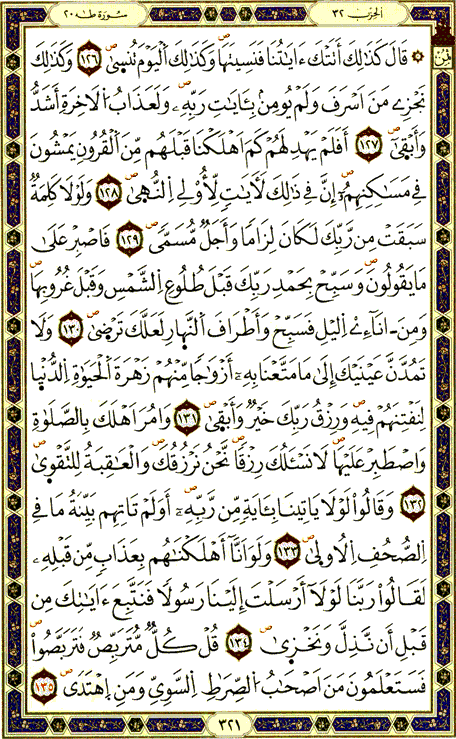 سورة طه ٢٠
الحزب ٣٢
ثمن
۞ قَالَ كَذَٰلِكَ أَتَتْكَ ءَايَٰتُنَا فَنَسِيتَهَا وَكَذَٰلِكَ اَ۬لْيَوْمَ تُنسَىٰ ١٢٦ وَكَذَٰلِكَ
نَجْزِے مَنَ اَسْرَفَ وَلَمْ يُومِنۢ بِـَٔايَٰتِ رَبِّهِۦ وَلَعَذَابُ اُ۬لَاخِرَةِ أَشَدُّ
وَأَبْقَىٰٓ ١٢٧ أَفَلَمْ يَهْدِ لَهُمْ كَمَ اَهْلَكْنَا قَبْلَهُم مِّنَ اَ۬لْقُرُونِ يَمْشُونَ
فِے مَسَٰكِنِهِمُۥٓ إِنَّ فِے ذَٰلِكَ لَأٓيَٰتٖ لِّأُوْلِے اِ۬لنُّهَىٰ ١٢٨ وَلَوْلَا كَلِمَةٞ
سَبَقَتْ مِن رَّبِّكَ لَكَانَ لِزَاماٗ وَأَجَلٞ مُّسَمّىٗ ١٢٩ فَاصْبِرْ عَلَىٰ
مَا يَقُولُونَ وَسَبِّحْ بِحَمْدِ رَبِّكَ قَبْلَ طُلُوعِ اِ۬لشَّمْسِ وَقَبْلَ غُرُوبِهَا
وَمِنَ اٰنَآءِےْ اِ۬ليْلِ فَسَبِّحْ وَأَطْرَافَ اَ۬لنَّهَارِ لَعَلَّكَ تَرْضَىٰ ١٣٠ وَلَا
تَمُدَّنَّ عَيْنَيْكَ إِلَىٰ مَا مَتَّعْنَا بِهِۦٓ أَزْوَٰجاٗ مِّنْهُمْ زَهْرَةَ اَ۬لْحَيَوٰةِ اِ۬لدُّنْيَا
لِنَفْتِنَهُمْ فِيهِ وَرِزْقُ رَبِّكَ خَيْرٞ وَأَبْقَىٰ ١٣١ وَامُرَ اَهْلَكَ بِالصَّلَوٰةِ
وَاصْطَبِرْ عَلَيْهَا لَا نَسْـَٔلُكَ رِزْقاٗ نَّحْنُ نَرْزُقُكَ وَالْعَٰقِبَةُ لِلتَّقْوَىٰ
١٣٢ وَقَالُواْ لَوْلَا يَاتِينَا بِـَٔايَةٖ مِّن رَّبِّهِۦٓ أَوَلَمْ تَاتِهِم بَيِّنَةُ مَا فِے
اِ۬لصُّحُفِ اِ۬لُاولَىٰ ١٣٣ وَلَوَ اَنَّآ أَهْلَكْنَٰهُم بِعَذَابٖ مِّن قَبْلِهِۦ
لَقَالُواْ رَبَّنَا لَوْلَآ أَرْسَلْتَ إِلَيْنَا رَسُولاٗ فَنَتَّبِعَ ءَايَٰتِكَ مِن
قَبْلِ أَن نَّذِلَّ وَنَخْزَىٰ ١٣٤ قُلْ كُلّٞ مُّتَرَبِّصٞ فَتَرَبَّصُواْ
فَسَتَعْلَمُونَ مَنَ اَصْحَٰبُ اُ۬لصِّرَٰطِ اِ۬لسَّوِيِّ وَمَنِ اِ۪هْتَدَىٰ ١٣٥
٣٢١